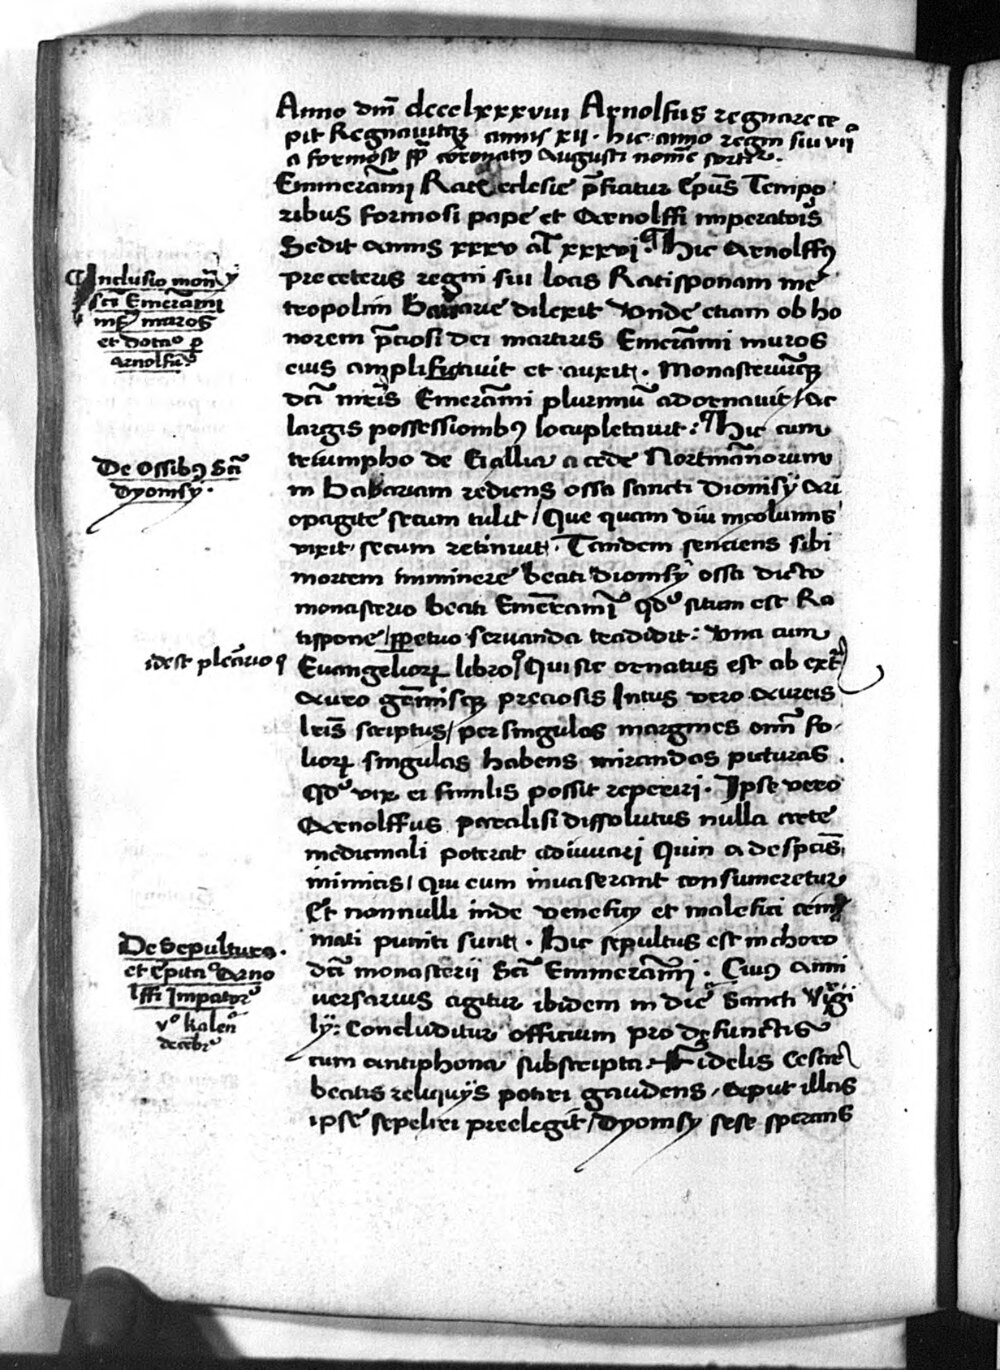 Anno dm̄ dccclxxxviii Arnolfus regnare ce
pit Regnauitqꝫ annis xii · hic anno regni sui viiº
a formoso p̄p̄ coronatꝰ Augusti nomē
Emmerā̄mi Rat̄ ecclesie p̄ficitur Ep̄us Tempo
ribus formosi pape et Arnolffi imperatoris
Sedit annis xxxv al̄ xxxvi Hic Arnolffꝰ
pre ceteris regni sui locis Ratisponam me
tropolim Bauarie dilexit Vnde etiam ob ho
norem p̄ciosi dei martiris Emerām̄i muros
eius amplificauit et auxit · Monasteriūqꝫ
dc̄i mr̄is Emerām̄i plurimū adornauit / Ac
largis possessionibꝰ locupletauit : Hic cum
triumpho de Gallia a cede Nortmānorum
in Babariam rediens ossa sancti Dionisÿ Ari
opagite secum tulit / Que quam diu incolumis
vixit secum retinuit · Tandem senciens sibi
mortem imminere beati Dionisÿ ossa dicto
monasterio beati Emerām̄i qd̄ situm est Ra
tispone / ꝑpetuo seruanda tradidit : Vna cum
Euangelioꝝ libro Qui sic ornatus est ab ext̄
Auro gēmisqꝫ preciosis Intus vero Aureis
lr̄is scriptus / per singulas margines omī fo
lioꝝ singulas habens mirandas picturas .
Qd̄ vix ei similis possit reperiri · Ipse vero
Arnolffus paralisi dissolutus nulla arte
medicinali poterat adiuuari Quin a despc̄is
inimicis / Qui eum inuaserant consumeretur
Et nonnulli inde venefici et malefici crimi
nati puniti sunt · Hic sepultus est in choro
dc̄i monasterii Sc̄i Emmerām̄i · Cuiꝰ anni
uersarius agitur ibidem in die Sancti Virgi
lÿ : Concluditur officium pro defunctis
cum antiphona subscripta Fidelis Cesar
beatis reliquÿs potiri gaudens / Aput illas
ipse sepeliri preelegit / Dyonisÿ sese sperans
Inclusio mon̄
sc̄i Emerām̄i
et dotaº ꝑ
Arnolfū
De Ossibꝰ Sc̄i
Dyonisÿ ·
idest plēario
De Sepultura ·
et Epitaº Arno
lffi Imp̄ator
vº kalen̄
decēbr̄